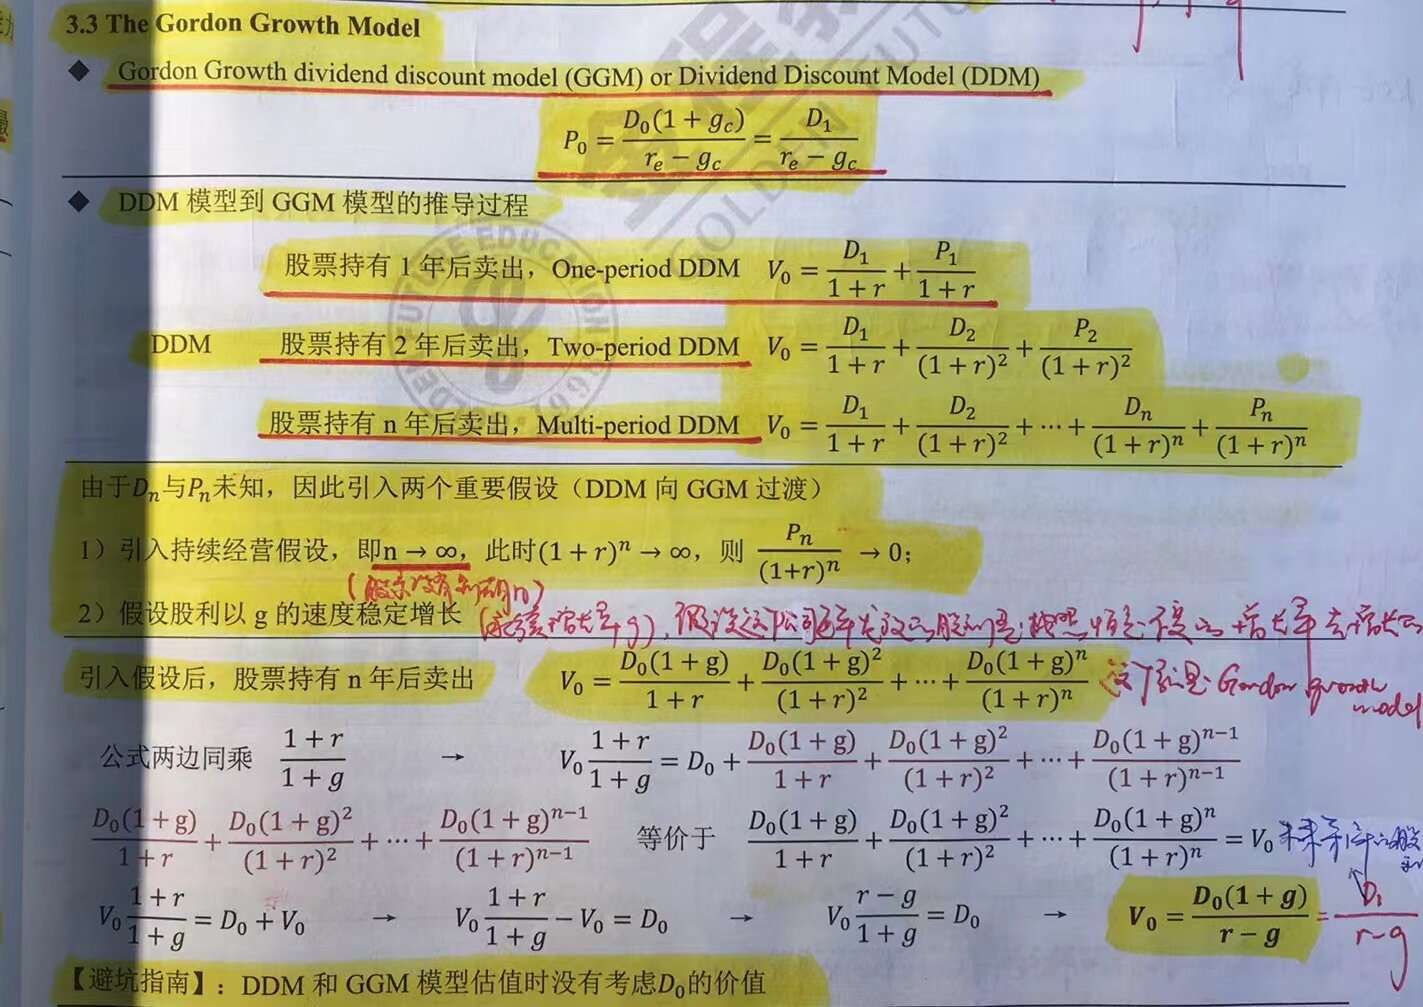 3.3 The Gordon Growth Model
◆ Gordon Growth dividend discount model (GGM) or Dividend Discount Model (DDM)
P₀ = D₀(1 + g_c)/(r_e − g_c) = D₁/(r_e − g_c)
◆ DDM 模型到 GGM 模型的推导过程
股票持有 1 年后卖出，One-period DDM V₀ = D₁/(1 + r) + P₁/(1 + r)
DDM 股票持有 2 年后卖出，Two-period DDM V₀ = D₁/(1 + r) + D₂/(1 + r)² + P₂/(1 + r)²
股票持有 n 年后卖出，Multi-period DDM V₀ = D₁/(1 + r) + D₂/(1 + r)² + ⋯ + Dₙ/(1 + r)ⁿ + Pₙ/(1 + r)ⁿ
由于Dₙ与Pₙ未知，因此引入两个重要假设（DDM 向 GGM 过渡）
1）引入持续经营假设，即n → ∞，此时(1 + r)ⁿ → ∞，则 Pₙ/(1+r)ⁿ → 0；
2）假设股利以 g 的速度稳定增长
假设这个公司每年发放的股利是按照恒定不变的增长率去增长的
引入假设后，股票持有 n 年后卖出 V₀ = D₀(1 + g)/(1 + r) + D₀(1 + g)²/(1 + r)² + ⋯ + D₀(1 + g)ⁿ/(1 + r)ⁿ 这个就是 Gordon growth model
公式两边同乘 (1 + r)/(1 + g) → V₀ (1 + r)/(1 + g) = D₀ + D₀(1 + g)/(1 + r) + D₀(1 + g)²/(1 + r)² + ⋯ + D₀(1 + g)ⁿ⁻¹/(1 + r)ⁿ⁻¹
D₀(1 + g)/(1 + r) + D₀(1 + g)²/(1 + r)² + ⋯ + D₀(1 + g)ⁿ⁻¹/(1 + r)ⁿ⁻¹ 等价于 D₀(1 + g)/(1 + r) + D₀(1 + g)²/(1 + r)² + ⋯ + D₀(1 + g)ⁿ/(1 + r)ⁿ = V₀
V₀ (1 + r)/(1 + g) = D₀ + V₀ → V₀ (1 + r)/(1 + g) − V₀ = D₀ → V₀ (r − g)/(1 + g) = D₀ → V₀ = D₀(1 + g)/(r − g) = D₁/(r − g)
【避坑指南】：DDM 和 GGM 模型估值时没有考虑D₀的价值